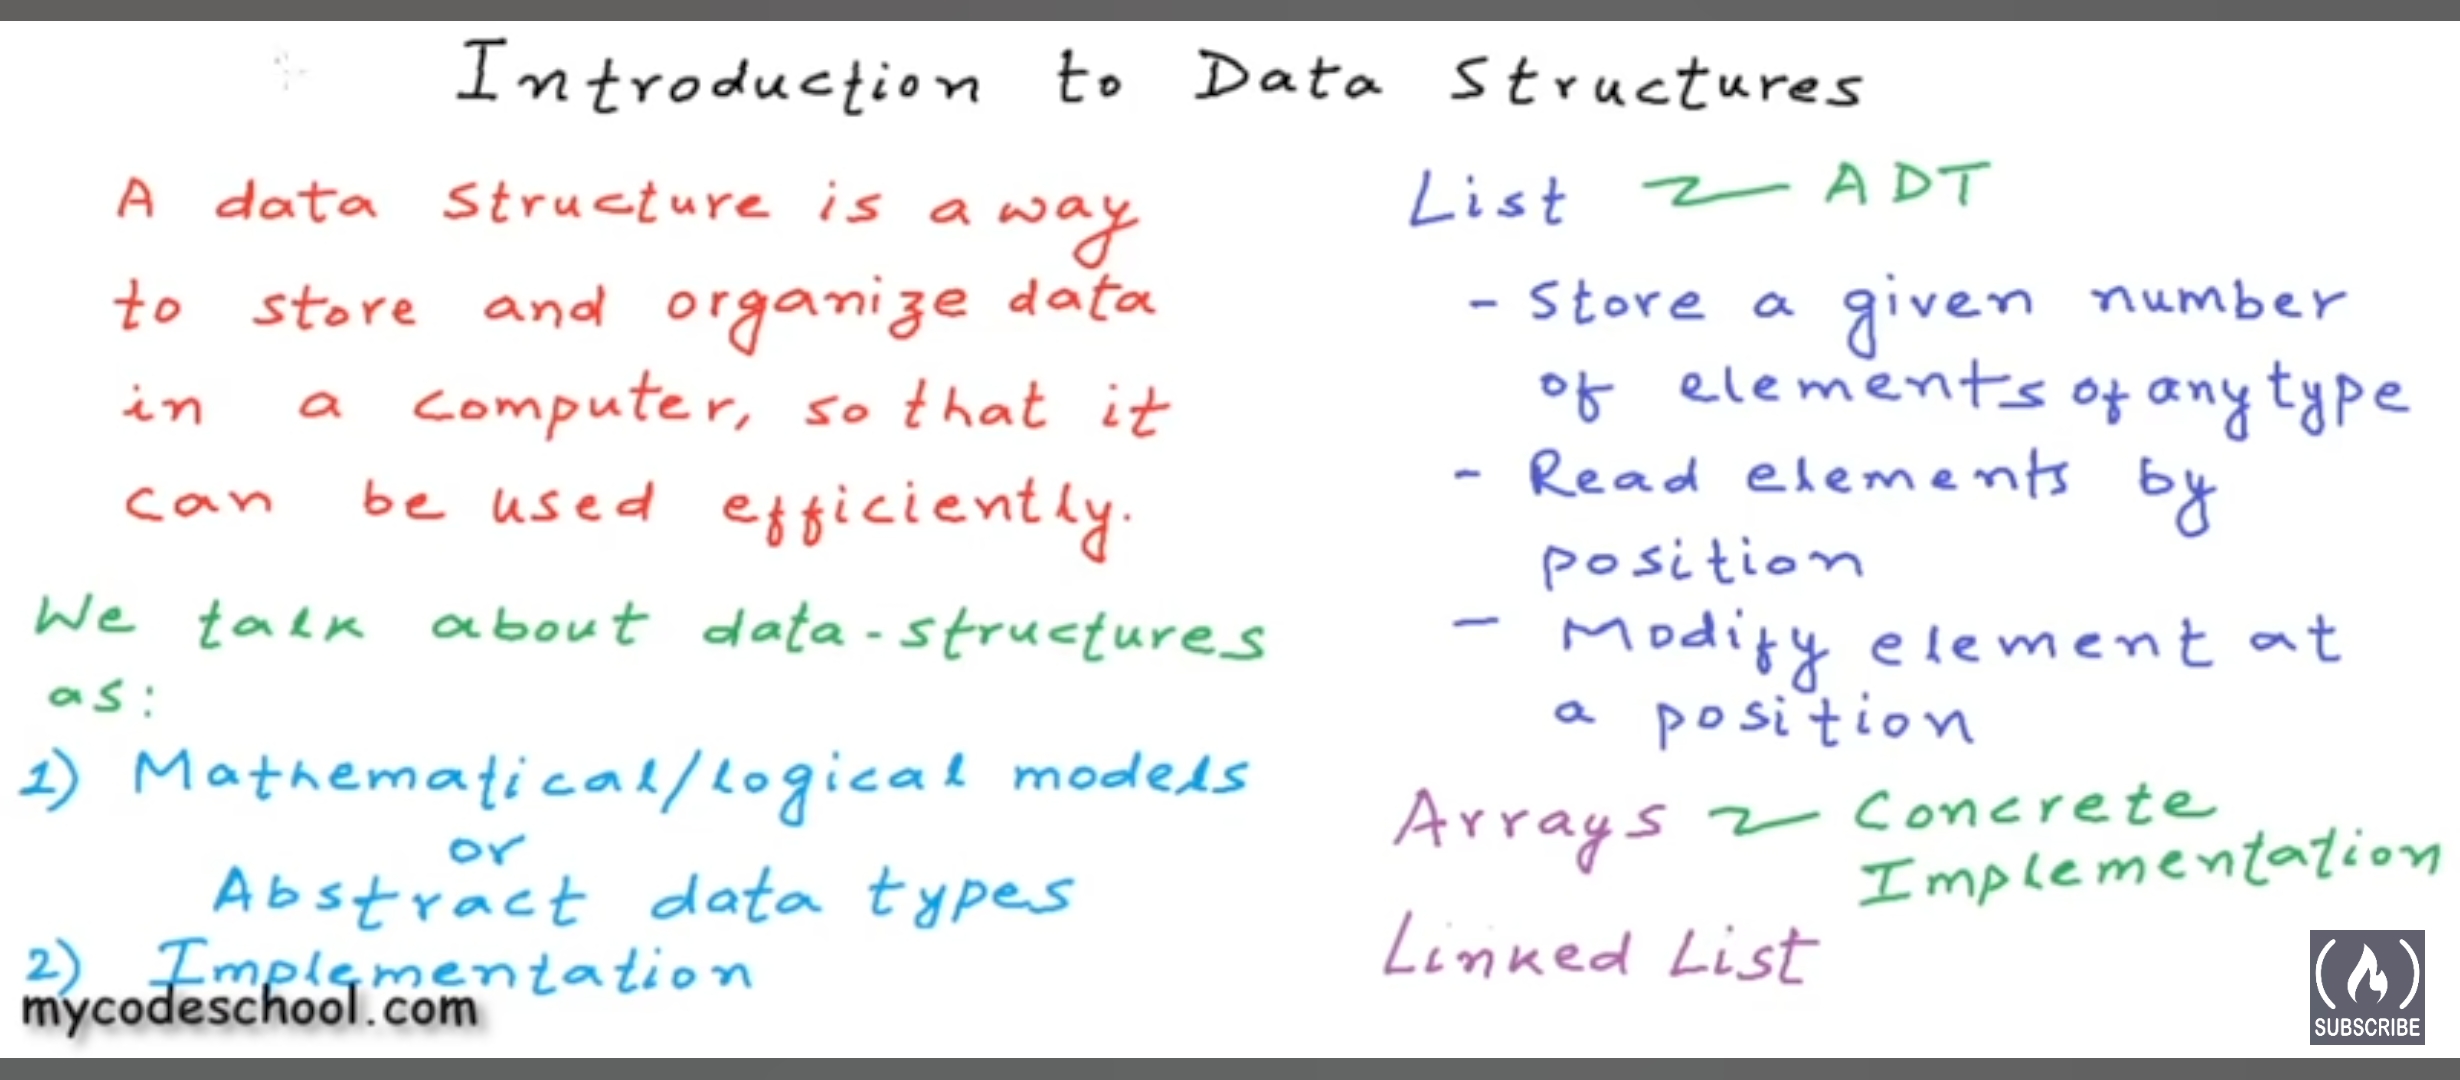 Introduction to Data Structures
A data structure is a way
to store and organize data
in a computer, so that it
can be used efficiently.
We talk about data-structures
as:
1) Mathematical/logical models
or
Abstract data types
2) Implementation
mycodeschool.com
List ADT
- Store a given number
of elements of any type
- Read elements by
position
- Modify element at
a position
Arrays Concrete
Implementation
Linked List
SUBSCRIBE